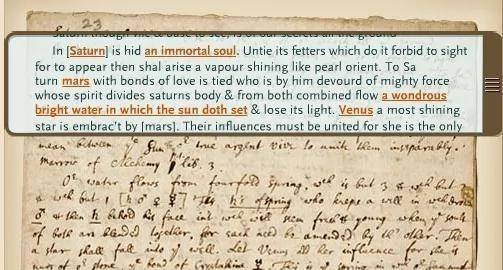 23
Saturn though vile & base to see, is of our secrets all the ground
In [Saturn] is hid an immortal soul. Untie its fetters which do it forbid to sight
for to appear then shal arise a vapour shining like pearl orient. To Sa
turn mars with bonds of love is tied who is by him devourd of mighty force
whose spirit divides saturns body & from both combined flow a wondrous
bright water in which the sun doth set & lose its light. Venus a most shining
star is embrac't by [mars]. Their influences must be united for she is the only
mean between ye Sun & or true argent vive to unite them inseparably.
marrow of Alchemy lib 3.
Or water flows from fourfold spring. wch is but 3 & wch but 2
& wch but 1 [ ♄ ♂ ☿ ] This ♄'s ofspring who keeps a well in wch drown
♂ & then ♄ behold his face in wch will seem fresh & young when ye souls
of both are blended together, for each need be amended by th' other. Then
a star shall fall into ye well. Let Venus add her influence for she is
nurs of or stone, ye bond of Crystalline ☿. This is ye spring in